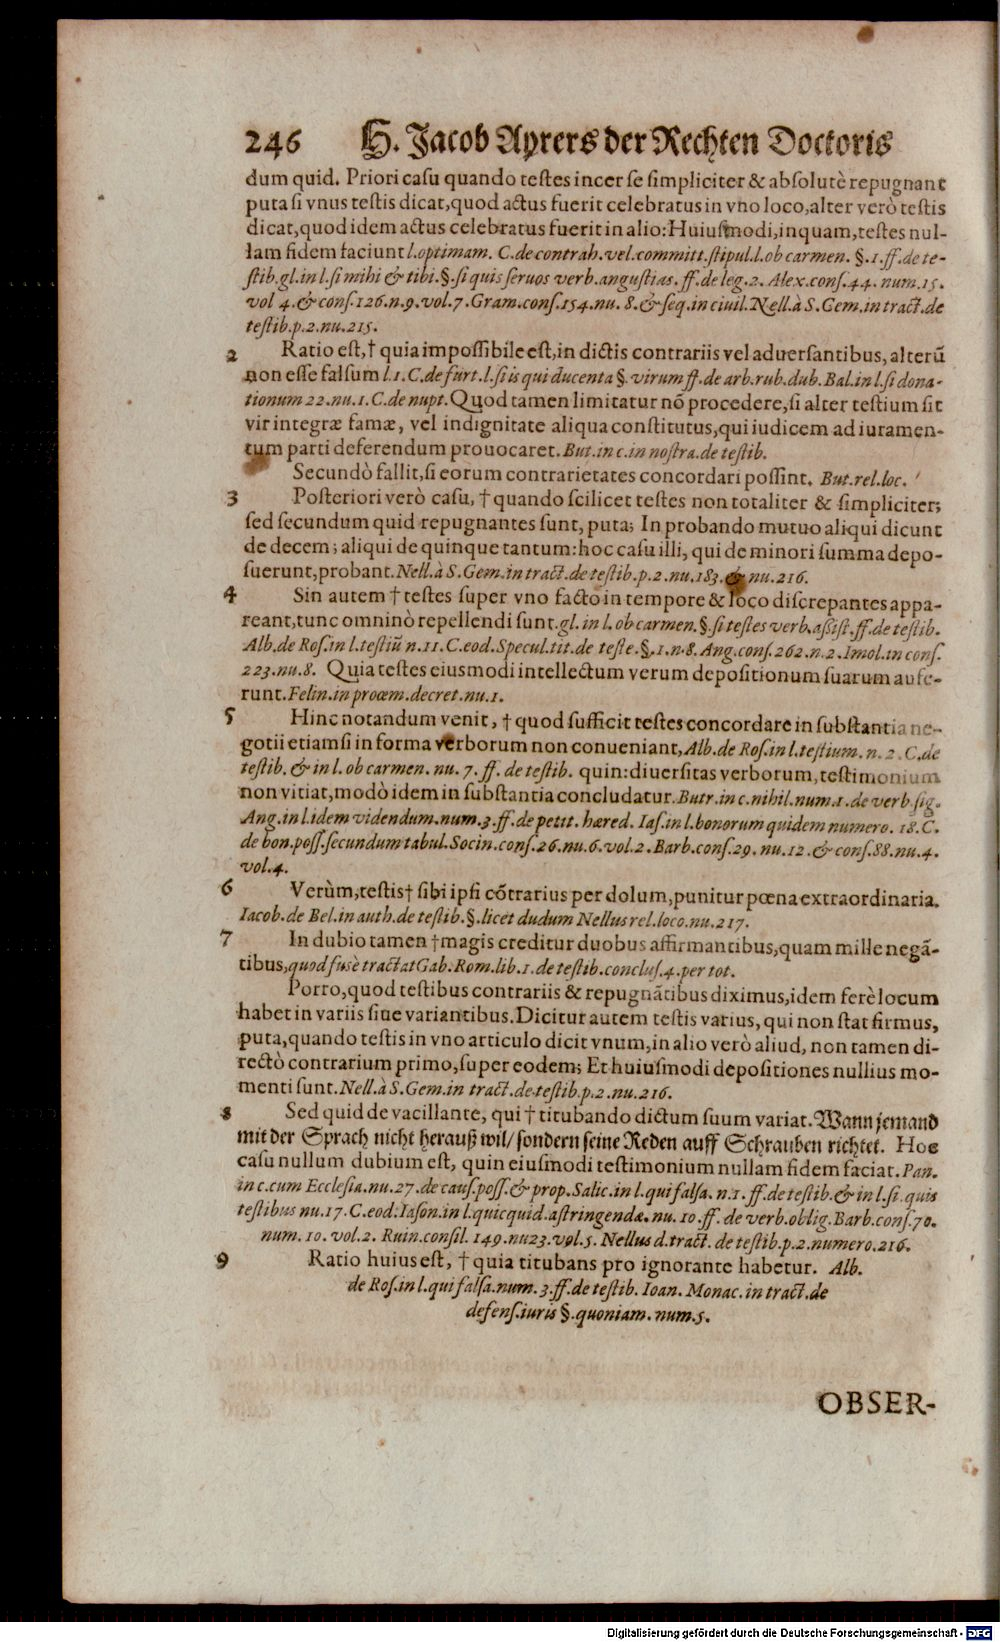 246 H. Jacob Ayrers der Rechten Doctoris
dum quid. Priori casu quando testes inter se simpliciter & absolutè repugnant
puta si vnus testis dicat, quod actus fuerit celebratus in vno loco, alter verò testis
dicat, quod idem actus celebratus fuerit in alio: Huiusmodi, inquam, testes nul-
lam fidem faciunt l. optimam. C. de contrah. vel. committ. stipul. l. ob carmen. §. 1. ff. de te-
stib. gl. in l. si mihi & tibi. §. si quis seruos verb. angustias. ff. de leg. 2. Alex. cons. 44. num. 15.
vol 4. & cons. 126. n. 9. vol. 7. Gram. cons. 154. nu. 8. & seq. in ciuil. Nell. à S. Gem. in tract. de
testib. p. 2. nu. 215.
2 Ratio est, † quia impossibile est, in dictis contrariis vel aduersantibus, alterũ
non esse falsum l. 1. C. de furt. l. si is qui ducenta §. virum ff. de arb. rub. dub. Bal. in l. si dona-
tionum 22. nu. 1. C. de nupt. Quod tamen limitatur nõ procedere, si alter testium sit
vir integræ famæ, vel indignitate aliqua constitutus, qui iudicem ad iuramen-
tum parti deferendum prouocaret. But. in c. in nostra. de testib.
Secundò fallit, si eorum contrarietates concordari possint. But. rel. loc.
3 Posteriori verò casu, † quando scilicet testes non totaliter & simpliciter;
sed secundum quid repugnantes sunt, puta; In probando mutuo aliqui dicunt
de decem; aliqui de quinque tantum: hoc casu illi, qui de minori summa depo-
suerunt, probant. Nell. à S. Gem. in tract. de testib. p. 2. nu. 183. & nu. 216.
4 Sin autem † testes super vno facto in tempore & loco discrepantes appa-
reant, tunc omninò repellendi sunt. gl. in l. ob carmen. §. si testes verb. assist. ff. de testib.
Alb. de Ros. in l. testiũ n. 11. C. eod. Specul. tit. de teste. §. 1. n. 8. Ang. cons. 262. n. 2. Imol. in cons.
223. nu. 8. Quia testes eiusmodi intellectum verum depositionum suarum aufe-
runt. Felin. in proœm. decret. nu. 1.
5 Hinc notandum venit, † quod sufficit testes concordare in substantia ne-
gotii etiamsi in forma verborum non conueniant, Alb. de Ros. in l. testium. n. 2. C. de
testib. & in l. ob carmen. nu. 7. ff. de testib. quin: diuersitas verborum, testimonium
non vitiat, modò idem in substantia concludatur. Butr. in c. nihil. num. 1. de verb. sig.
Ang. in l. idem videndum. num. 3. ff. de petit. hæred. Ias. in l. bonorum quidem numero. 18. C.
de bon. poss. secundum tabul. Socin. cons. 26. nu. 6. vol. 2. Barb. cons. 29. nu. 12. & cons. 88. nu. 4.
vol. 4.
6 Verùm, testis † sibi ipsi cõtrarius per dolum, punitur pœna extraordinaria.
Iacob. de Bel. in auth. de testib. §. licet dudum Nellus rel. loco. nu. 217.
7 In dubio tamen † magis creditur duobus affirmantibus, quam mille negã-
tibus, quod fusè tractat Gab. Rom. lib. 1. de testib. conclus. 4. per tot.
Porro, quod testibus contrariis & repugnãtibus diximus, idem ferè locum
habet in variis siue variantibus. Dicitur autem testis varius, qui non stat firmus,
puta, quando testis in vno articulo dicit vnum, in alio verò aliud, non tamen di-
rectò contrarium primo, super eodem; Et huiusmodi depositiones nullius mo-
menti sunt. Nell. à S. Gem. in tract. de testib. p. 2. nu. 216.
8 Sed quid de vacillante, qui † titubando dictum suum variat. Wann jemand
mit der Sprach nicht herauß wil / sondern seine Reden auff Schrauben richtet. Hoc
casu nullum dubium est, quin eiusmodi testimonium nullam fidem faciat. Pan.
in c. cum Ecclesia. nu. 27. de caus. poss. & prop. Salic. in l. qui falsa. n. 1. ff. de testib. & in l. si quis
testibus nu. 17. C. eod. Iason. in l. quicquid. astringendæ. nu. 10. ff. de verb. oblig. Barb. cons. 70.
num. 10. vol. 2. Ruin. consil. 149. nu 23. vol. 5. Nellus d. tract. de testib. p. 2. numero. 216.
9 Ratio huius est, † quia titubans pro ignorante habetur. Alb.
de Ros. in l. qui falsa. num. 3. ff. de testib. Ioan. Monac. in tract. de
defens. iuris §. quoniam. num. 5.
OBSER-
Digitalisierung gefördert durch die Deutsche Forschungsgemeinschaft - DFG